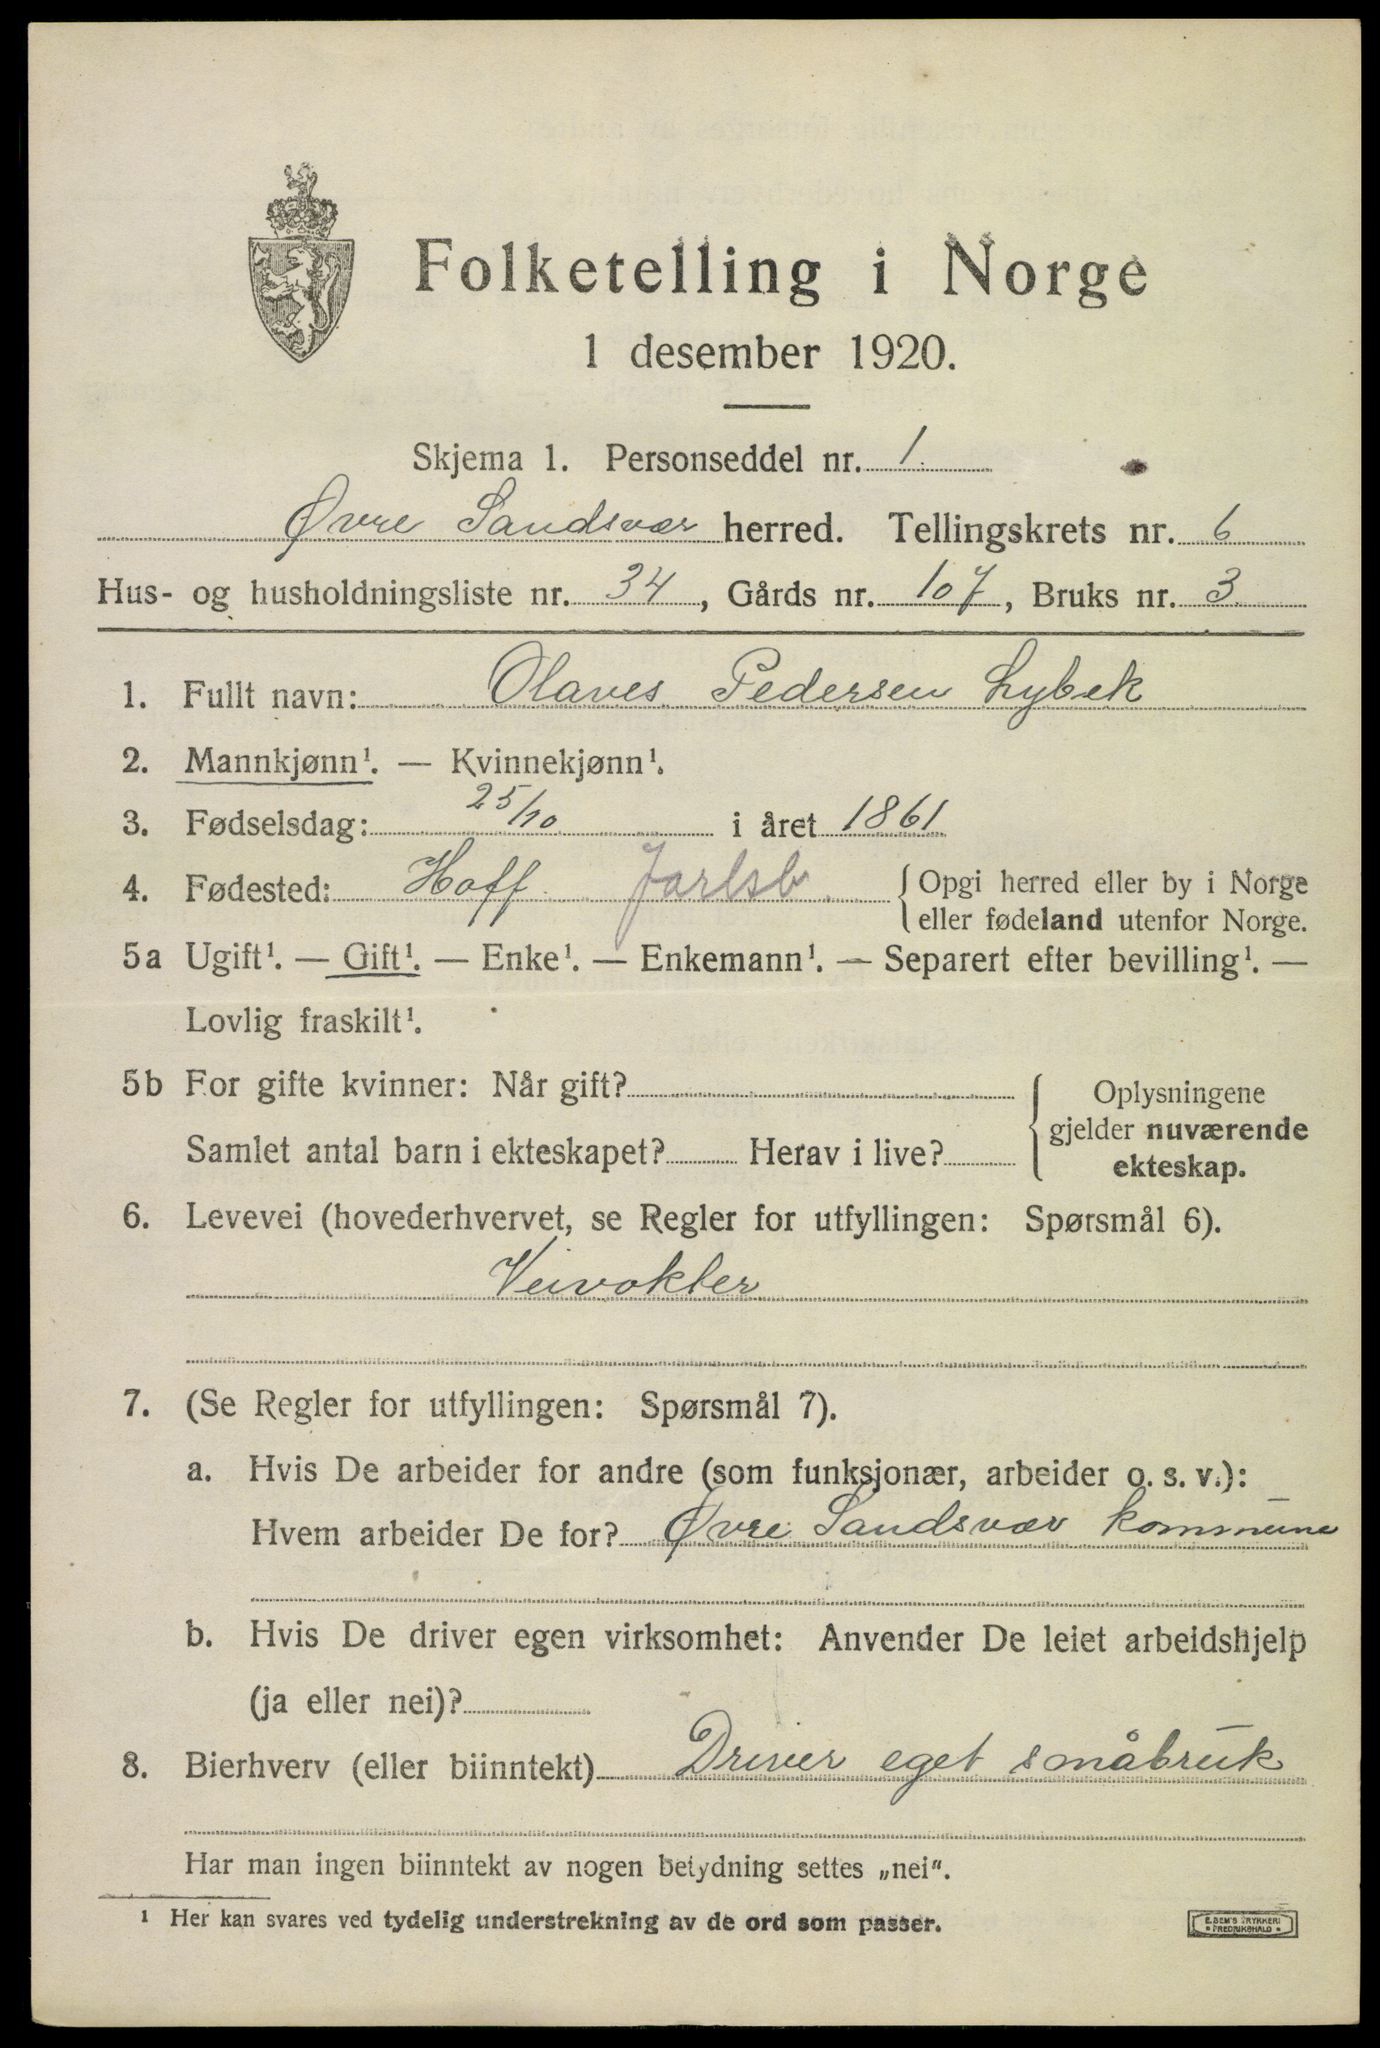 Folketelling i Norge
1 desember 1920.
Skjema 1. Personseddel nr. 1
Øvre Sandsvær herred. Tellingskrets nr. 6
Hus- og husholdningsliste nr. 34, Gårds nr. 107, Bruks nr. 3
1. Fullt navn: Olaves Pedersen Lybek
2. Mannkjønn¹. — Kvinnekjønn¹.
3. Fødselsdag: 25/10 i året 1861
4. Fødested: Hoff Jarlsb. {Opgi herred eller by i Norge
eller fødeland utenfor Norge.
5a Ugift¹. — Gift¹. — Enke¹. — Enkemann¹. — Separert efter bevilling¹. —
Lovlig fraskilt¹.
5b For gifte kvinner: Når gift?
Samlet antal barn i ekteskapet? Herav i live?
{Oplysningene
gjelder nuværende
ekteskap.
6. Levevei (hovederhvervet, se Regler for utfyllingen: Spørsmål 6).
Veivokter
7. (Se Regler for utfyllingen: Spørsmål 7).
a. Hvis De arbeider for andre (som funksjonær, arbeider o. s. v.):
Hvem arbeider De for? Øvre Sandsvær kommune
b. Hvis De driver egen virksomhet: Anvender De leiet arbeidshjelp
(ja eller nei)?
8. Bierhverv (eller biinntekt) Driver eget småbruk
Har man ingen biinntekt av nogen betydning settes „nei".
¹ Her kan svares ved tydelig understrekning av de ord som passer.
E. SEM'S TRYKKERI
FREDRIKSHALD